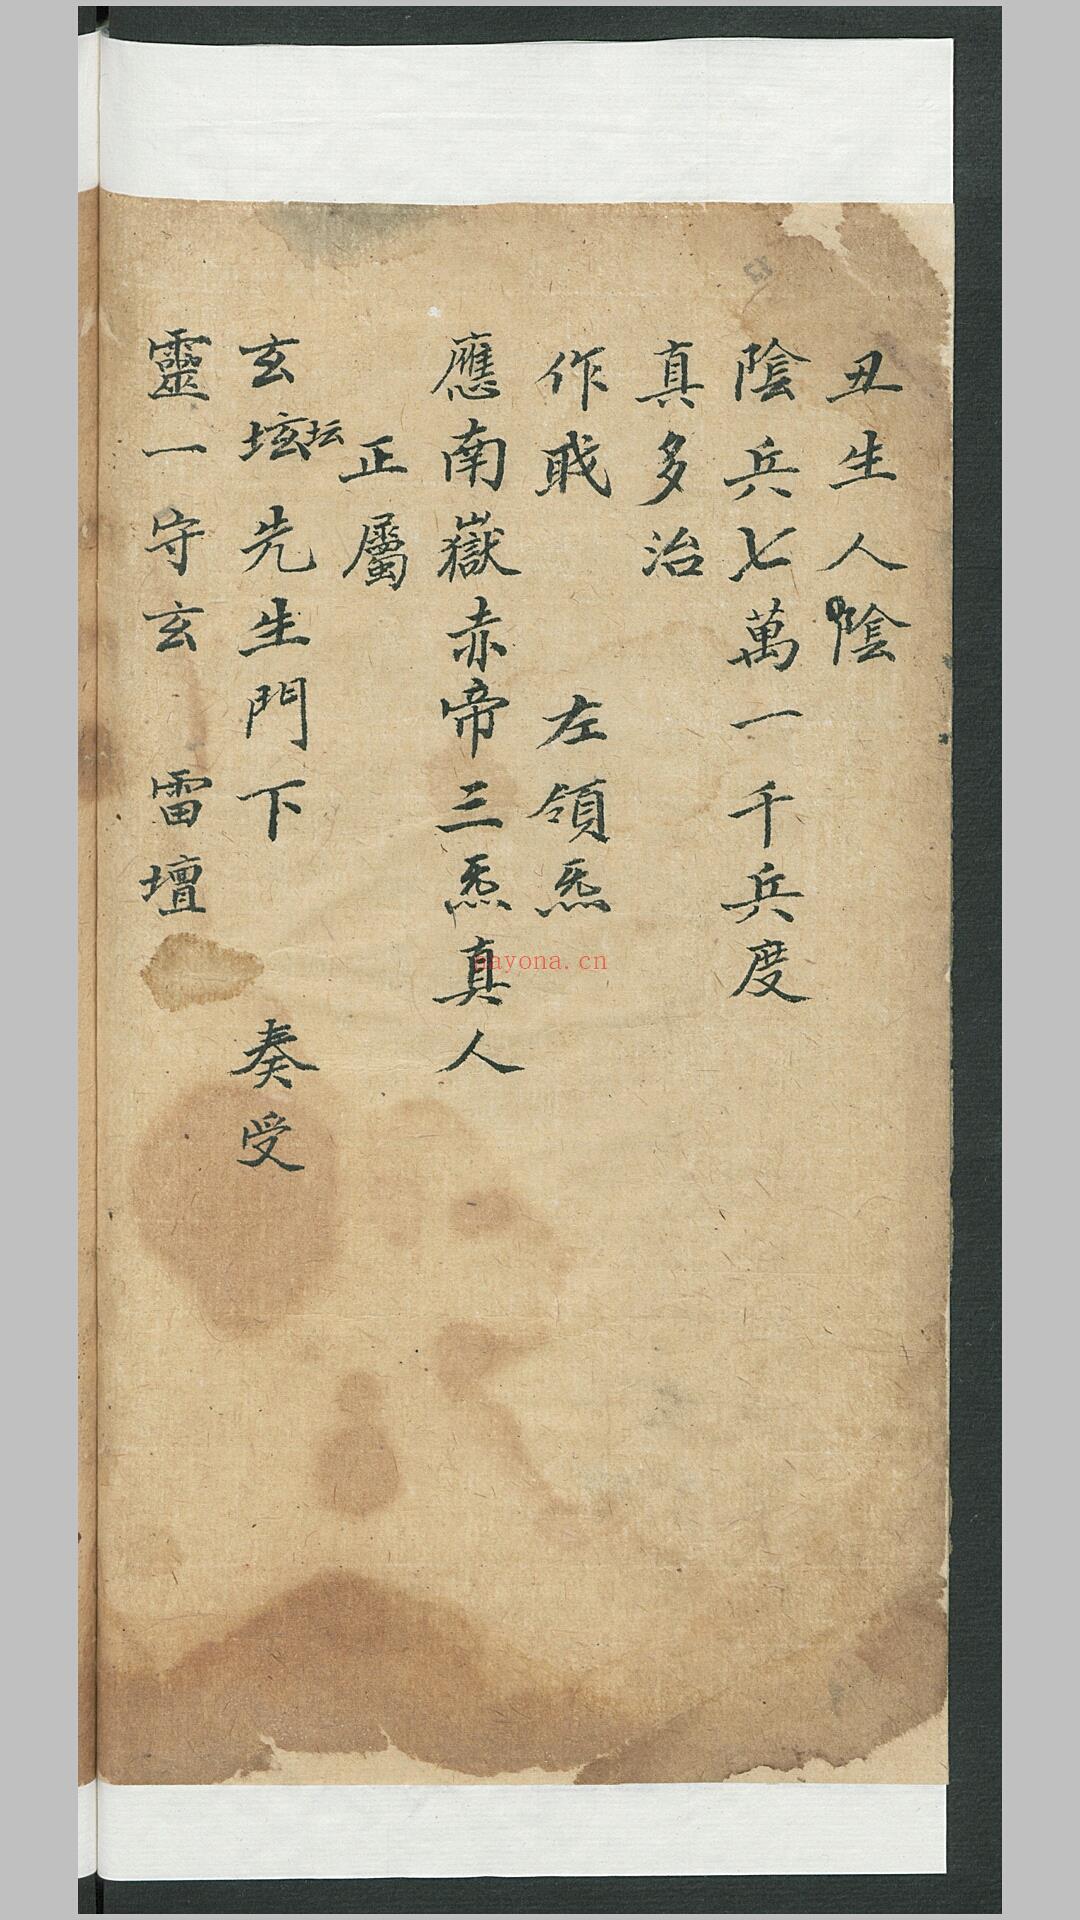 丑生人陰
陰兵七萬一千兵度
真多治
作戝 左領炁
應南嶽赤帝三炁真人
正屬
玄坛先生門下 奏受
坛
靈一守玄 雷壇
13
nayona.cn